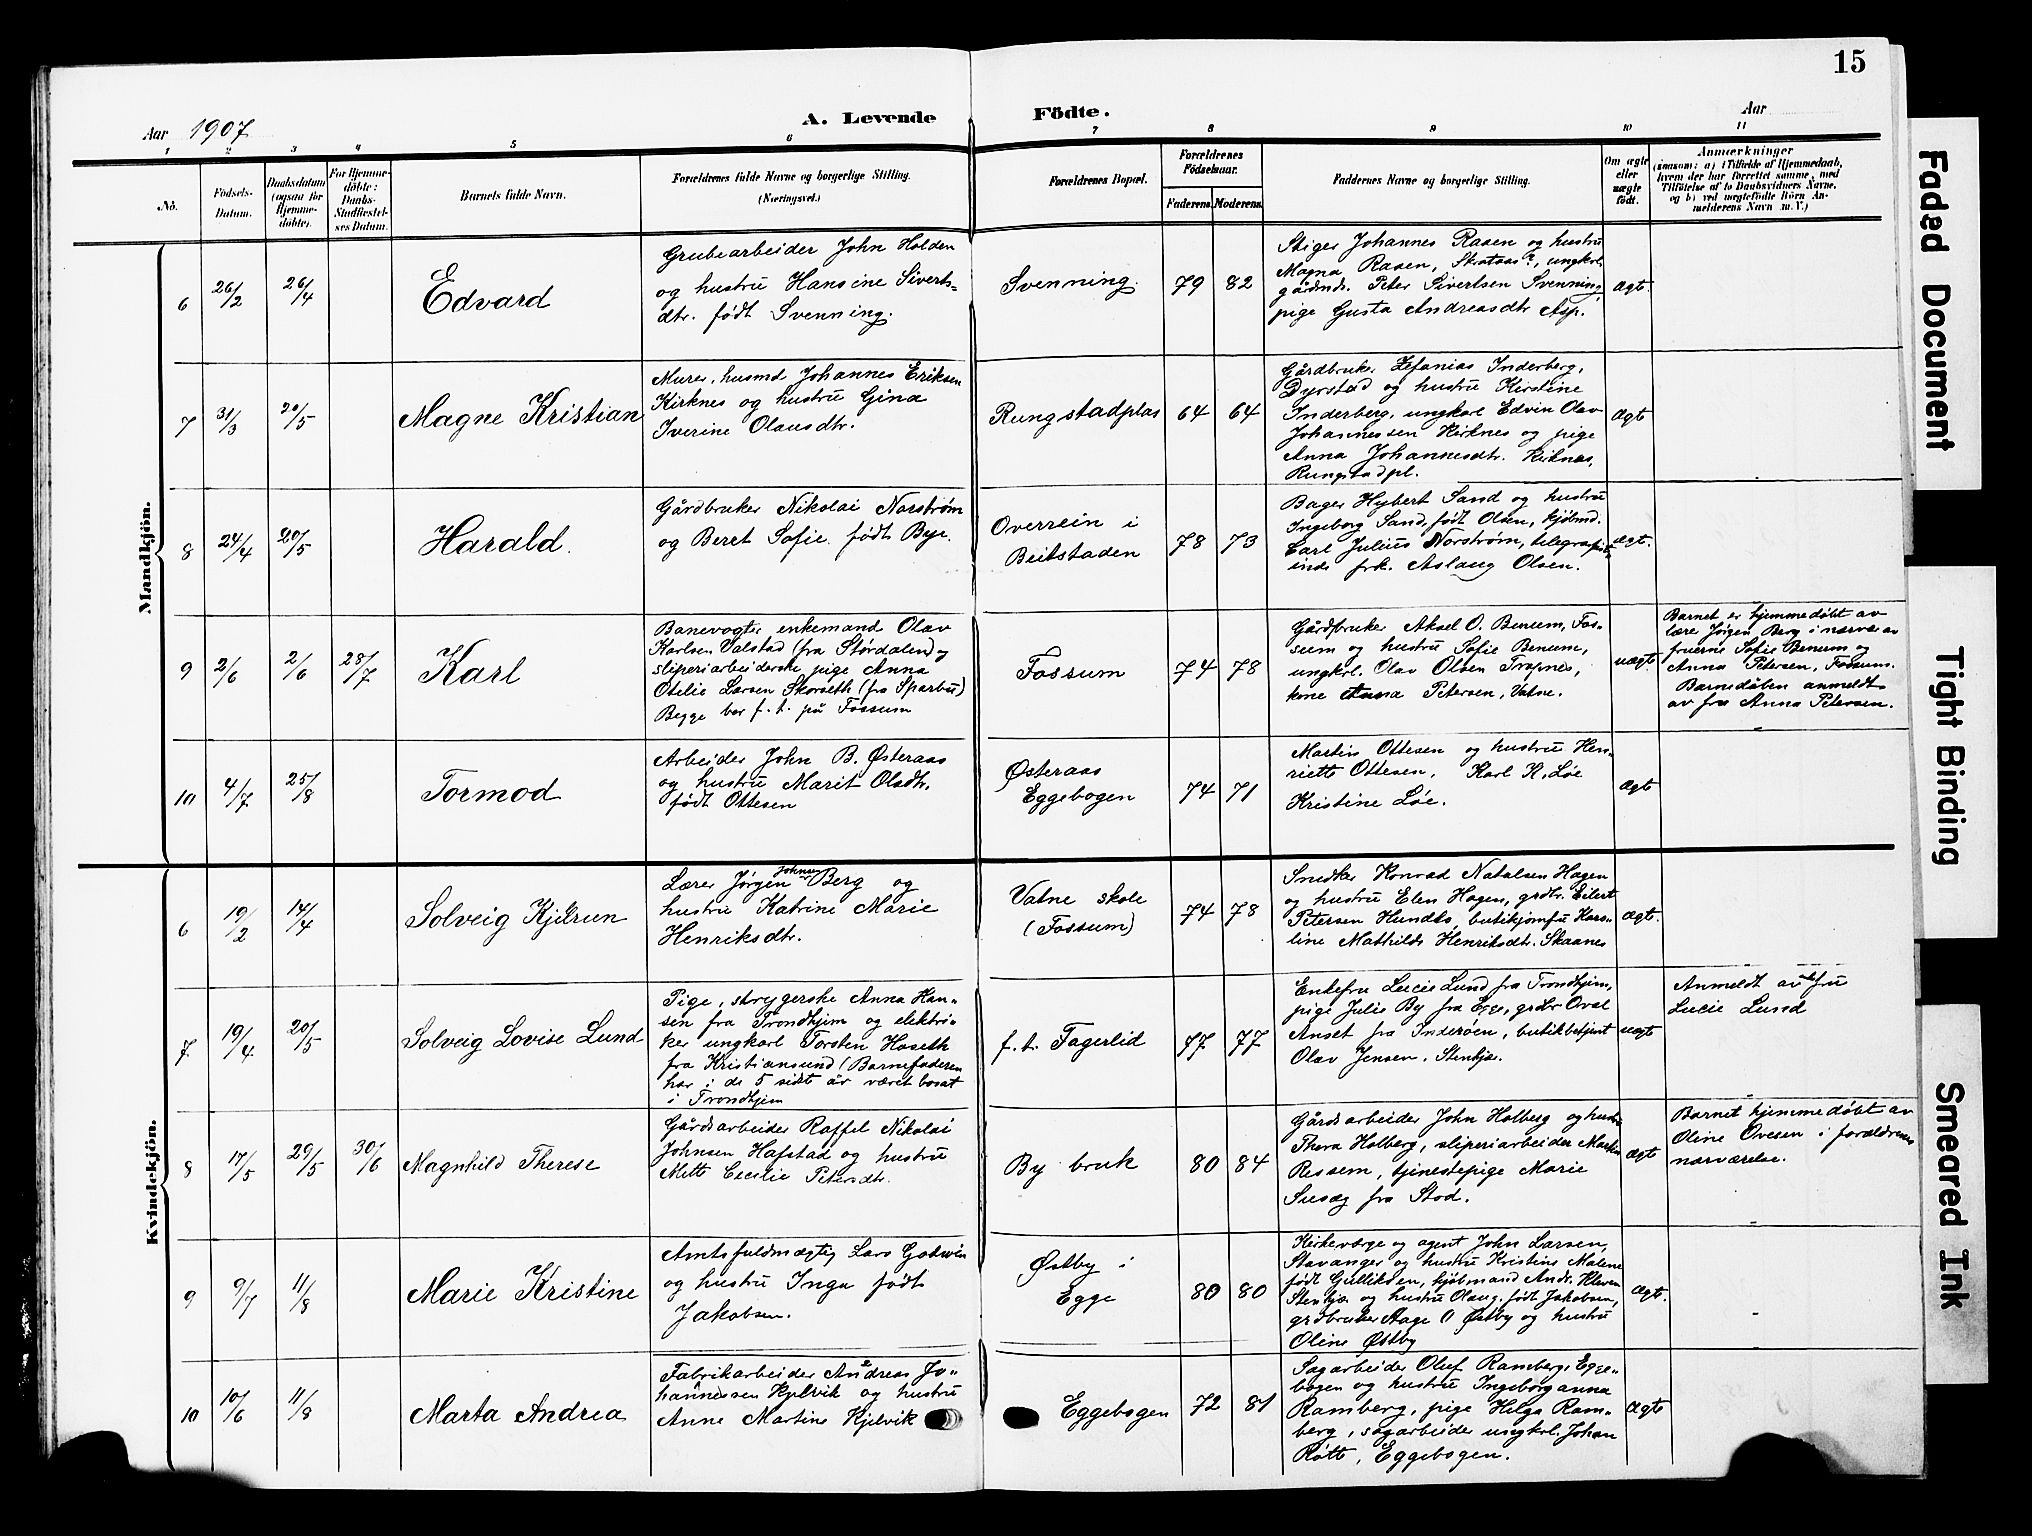 15
Aar 1907
A. Levende Födte.
Aar
1 2 3 4 5 6 7 8 9 10 11
No.
Födsels-
Datum.
Daabsdatum
(ogsaa for
Hjemme-
döbte).
For Hjemme-
döbte:
Daabs-
Stadfæstel-
ses Datum.
Barnets fulde Navn.
Forældrenes fulde Navne og borgerlige Stilling.
(Næringsvei.)
Forældrenes Bopæl.
Forældrenes
Födselsaar.
Faderens. Moderens.
Faddernes Navne og borgerlige Stilling.
Om ægte
eller
uægte
födt.
Anmærkninger
(saasom: a) i Tilfælde af Hjemmedaab,
hvem der har forrettet samme, med
Tilføielse af to Daabsvidners Navne,
og b) ved uægtefödte Börn An-
melderens Navn m. V.)
Mandkjön.
6 26/2 26/4
Edvard
Grubearbeider John Holden
og hustru Hansine Siverts-
dtr. født Svenning.
Svenning. 79 82
Stiger Johannes Rasen og hustru
Magna Raaen, Skataas?, ungkrl.
gårdnds. Peter Sivertsen Svenning,
pige Gusta Andreasdtr Asp.
ægt.
7 31/3 20/5
Magne Kristian
Murer, husmd Johannes Eriksen
Kirknes og hustru Gina
Iverine Olausdtr.
Rungstadplas 64 64
Gårdbruker Zefanias Inderberg,
Dyrstad og hustru Kirstine
Inderberg, ungkarl Edvin Olav
Johannessen Kirknes og pige
Anna Johannesdtr. Kirknes,
Rungstadpl.
ægt
8 24/4 20/5
Harald.
Gårdbruker Nikolai Norstrøm
og Beret Sofie født Bye.
Overrein i
Beitstaden
78 73
Bager Hybert Sand og hustru
Ingeborg Sand, født Olsen, kjøbmd.
Carl Julius Norstrøm, telegrafist-
inde frk. Aslaug Olsen.
ægt.
9 2/6 2/6 28/7
Karl
Banevogter enkemand Olav
Karlsen Valstad (fra Størdalen) og
sliperiarbeiderske pige Anna
Otelie Larsen Skorseth (fra Sparbu)
Begge bor f. t. på Fossum
Fossum 74 78
Gårdbruker Aksel O. Benum, Fos-
sum og hustru Sofie Benum,
ungkrl. Olav Olsen Trapnes,
kone Anna Petersen, Vatne.
uægte
Barnet er hjemmedøbt av
lære Jørgen Berg i nærvær av
fruerne Sofie Benum og
Anna Petersen, Fossum.
Barnedåben anmeldt
av fru Anna Petersen.
10 4/7 25/8
Tormod
Arbeider John B. Østeraas
og hustru Marit Olsdtr.
født Ottesen
Østeraas
Eggebogen
74 71
Martin Ottesen og hustru Hen-
riette Ottesen, Karl K. Løe
Kristine Løe.
ægte
Kvindekjön.
6 19/2 14/4
Solveig Kjelrun
Johnsen
Lærer Jørgen Berg og
hustru Katrine Marie
Henriksdtr.
Vatne skole
(Fossum)
74 78
Snedker Konrad Natalsen Hagen
og hustru Elen Hagen, grdbr. Eilert
Petersen Hundlo, butikjomfru Karo-
line Mathilde Henriksdtr. Skaanes
ægte.
7 19/4 20/5
Solveig Lovise Lund
Pige, strygerske Anna Han-
sen fra Trondhjem og elektri-
ker ungkarl Torsten Haseth
fra Kristiansund (Barnefaderen
har i de 5 sidste år været bosat
i Trondhjem
f. t. Fagerlid 77 77
Enkefru Lucie Lund fra Trondhjem,
pige Julie By fra Egge, grdbr Oval
Anset fra Inderøen, butikbetjent
Olav Jensen, Stenkjær.
uægte
Anmeldt av fru
Lucie Lund
8 17/5 29/5 30/6
Magnhild Therese
Gårdsarbeider Raffel Nikolai
Johnsen Hafstad og hustru
Mette Cecilie Petersdtr.
By bruk 80 84
Gårdsarbeider John Holberg og hustru
Thera Holberg, sliperiarbeider Martin
Ressem, tjenestepige Marie
Susæg fra Stod.
ægte
Barnet hjemmedøbt av
Oline Ovesen i forældrenes
nærværelse.
9 9/7 11/8
Marie Kristine
Amtsfuldmægtig Lars Godwin
og hustru Inga født
Jakobsen.
Østby i
Egge
80 80
Kirkeværge og agent John Larsen,
Stavanger og hustru Kristine Malene
født Gulliksen, kjøbmand Andr. Kleven
Stenkjær og hustru Olaug, født Jakobsen,
grdbruker Aage O Østby og hustru
Oline Østby
ægte.
10 10/6 11/8
Marta Andrea
Fabrikarbeider Andreas Jo-
hannessen Kjelvik og hustru
Anne Martine Kjelvik
Eggebogen 72 81
Sagarbeider Oluf Ramberg, Egge-
bogen og hustru Ingeborganna
Ramberg, pige Helga Ram-
berg, sagarbeider ungkrl. Johan
Røtte, Eggebogen.
ægte
Faded Document
Tight Binding
Smeared Ink